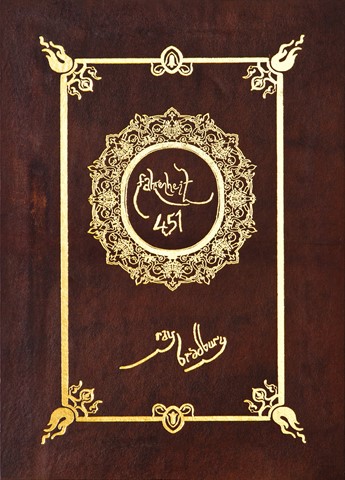 fahrenheit
451
ray
bradbury